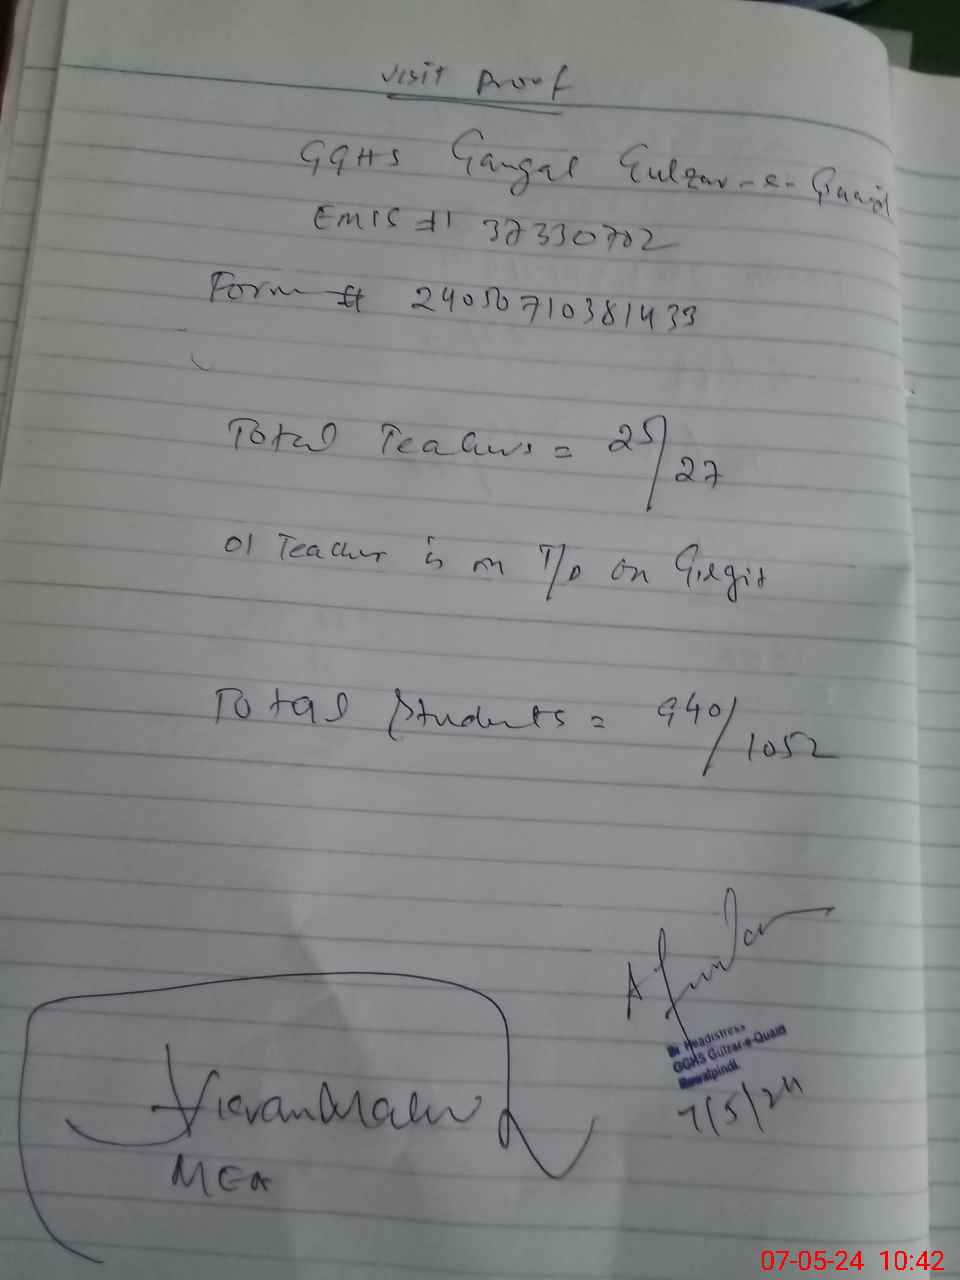 Visit Proof
GGHS Gangal Gulzar-e-Quaid
EMIS # 37330702
Form # 24050710381433
Total Teachers = 25/27
01 Teacher is on T/D on Gilgit
Total Students = 940/1052
Sr Headistress
GGHS Gulzar-e-Quaid
Rawalpindi
7/5/24
MEA
07-05-24 10:42